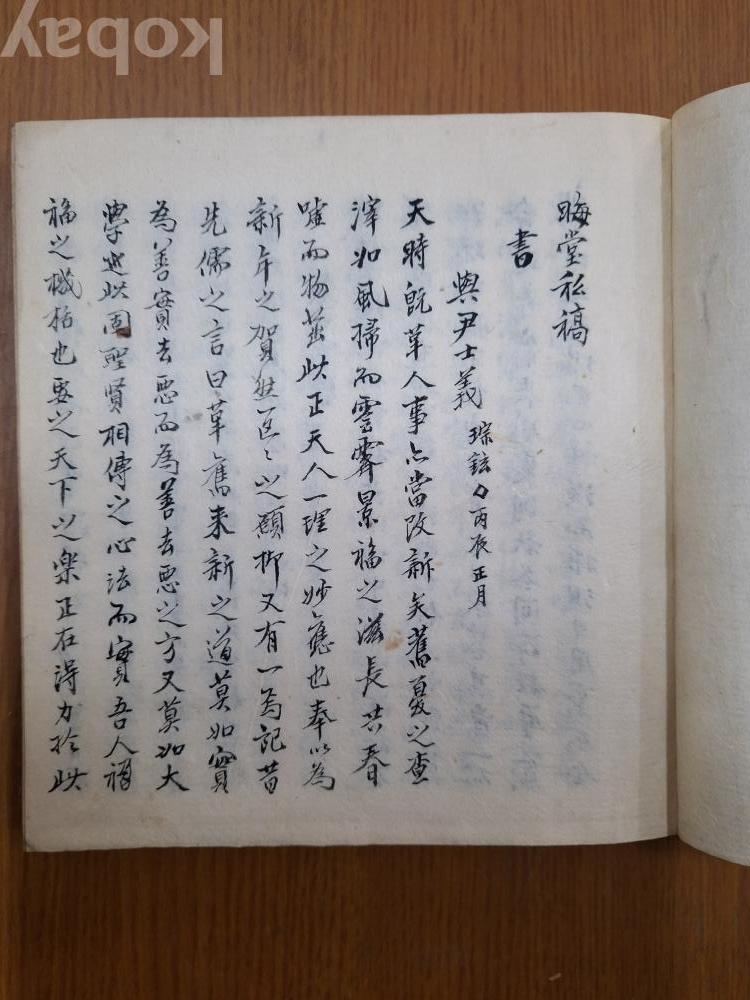 晦堂私稿
書
與尹士義 琮鉉 丙辰正月
天時旣革人事亦當改新矣舊憂之查
滓如風掃而雲霽景福之滋長共春
噓而物茁此正天人一理之妙應也奉以爲
新年之賀然區〻之願抑又有一焉記昔
先儒之言曰革舊来新之道莫如實
為善實去惡而為善去惡之方又莫如大
學也此固聖賢相傳之心法而實吾人禍
福之機栝也要之天下之楽正在得力於此
kobay